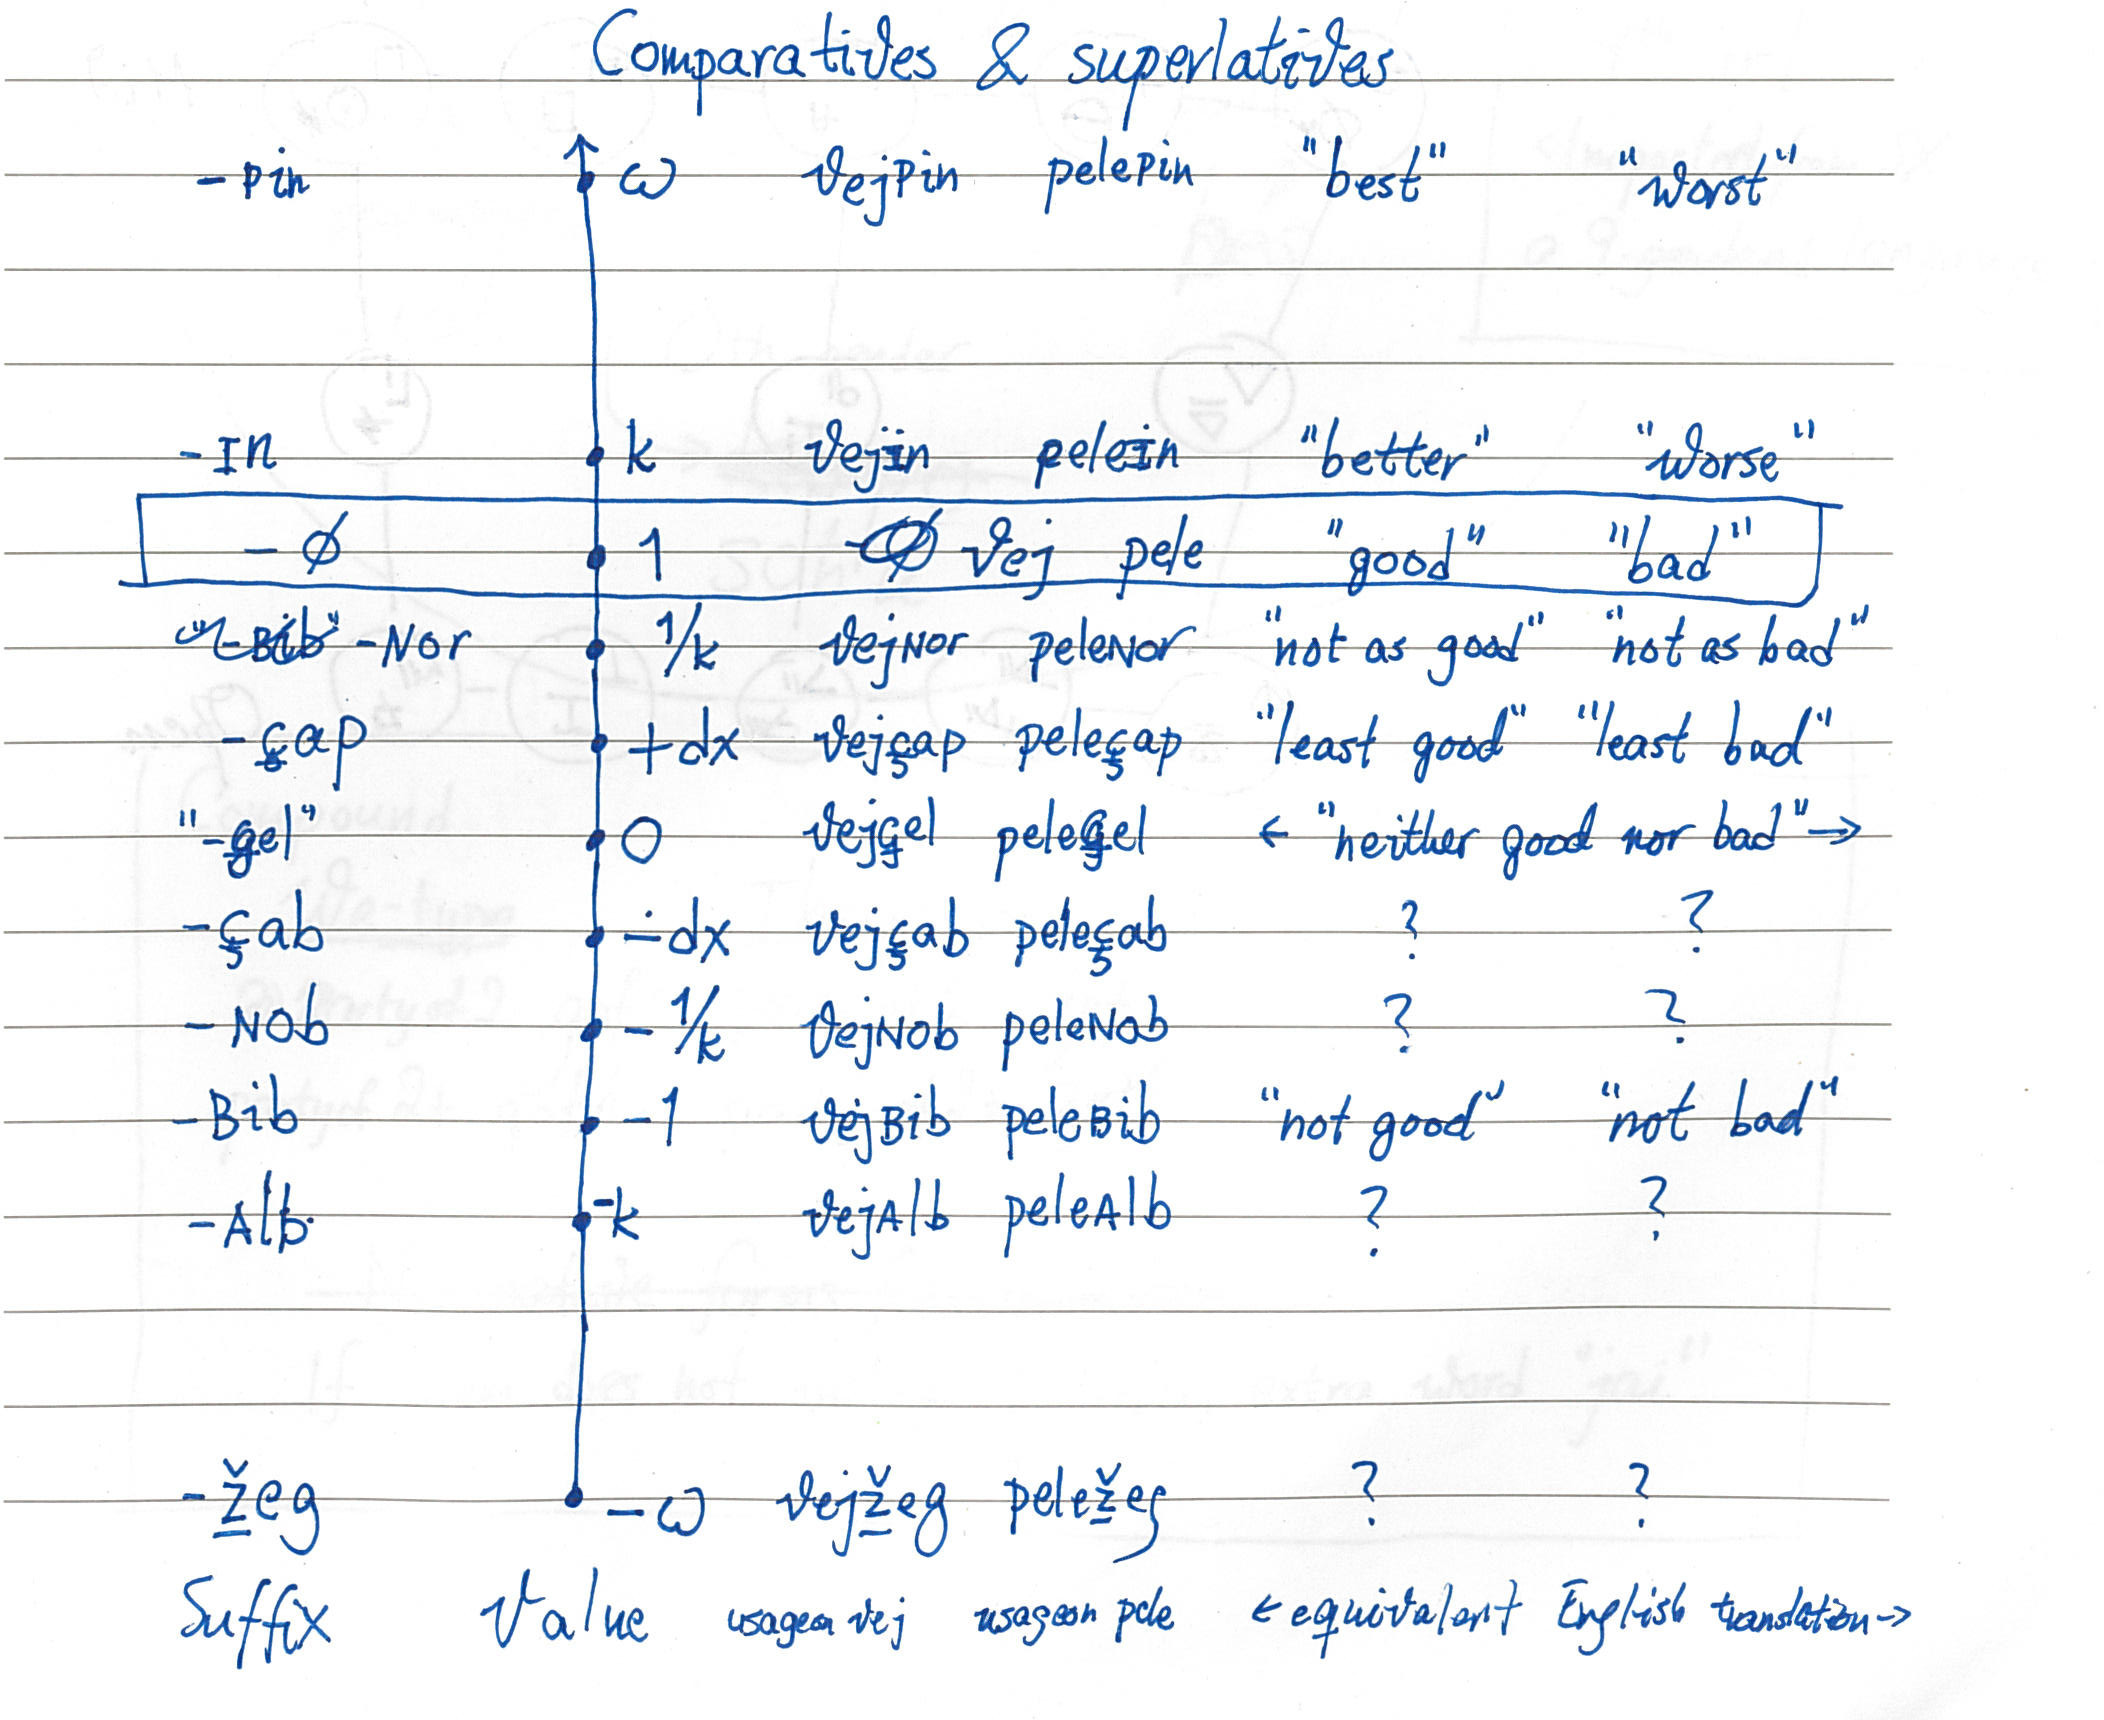 Comparatives & superlatives
-pin ω vejpin pelepin "best" "worst"
-ɪn k vejɪn peleɪn "better" "worse"
-Ø 1 vej pele "good" "bad"
-ɴor 1/k vejɴor peleɴor "not as good" "not as bad"
-çap +dx vejçap peleçap "least good" "least bad"
"-gel" 0 vejgel pelegel ← "neither good nor bad" →
-çab -dx vejçab peleçab ? ?
-ɴob -1/k vejɴob peleɴob ? ?
-ʙib -1 vejʙib peleʙib "not good" "not bad"
-ᴀlb -k vejᴀlb peleᴀlb ? ?
-ẕ̌eg -ω vejẕ̌eg peleẕ̌eg ? ?
Suffix Value usage on vej usage on pele ← equivalent English translation →